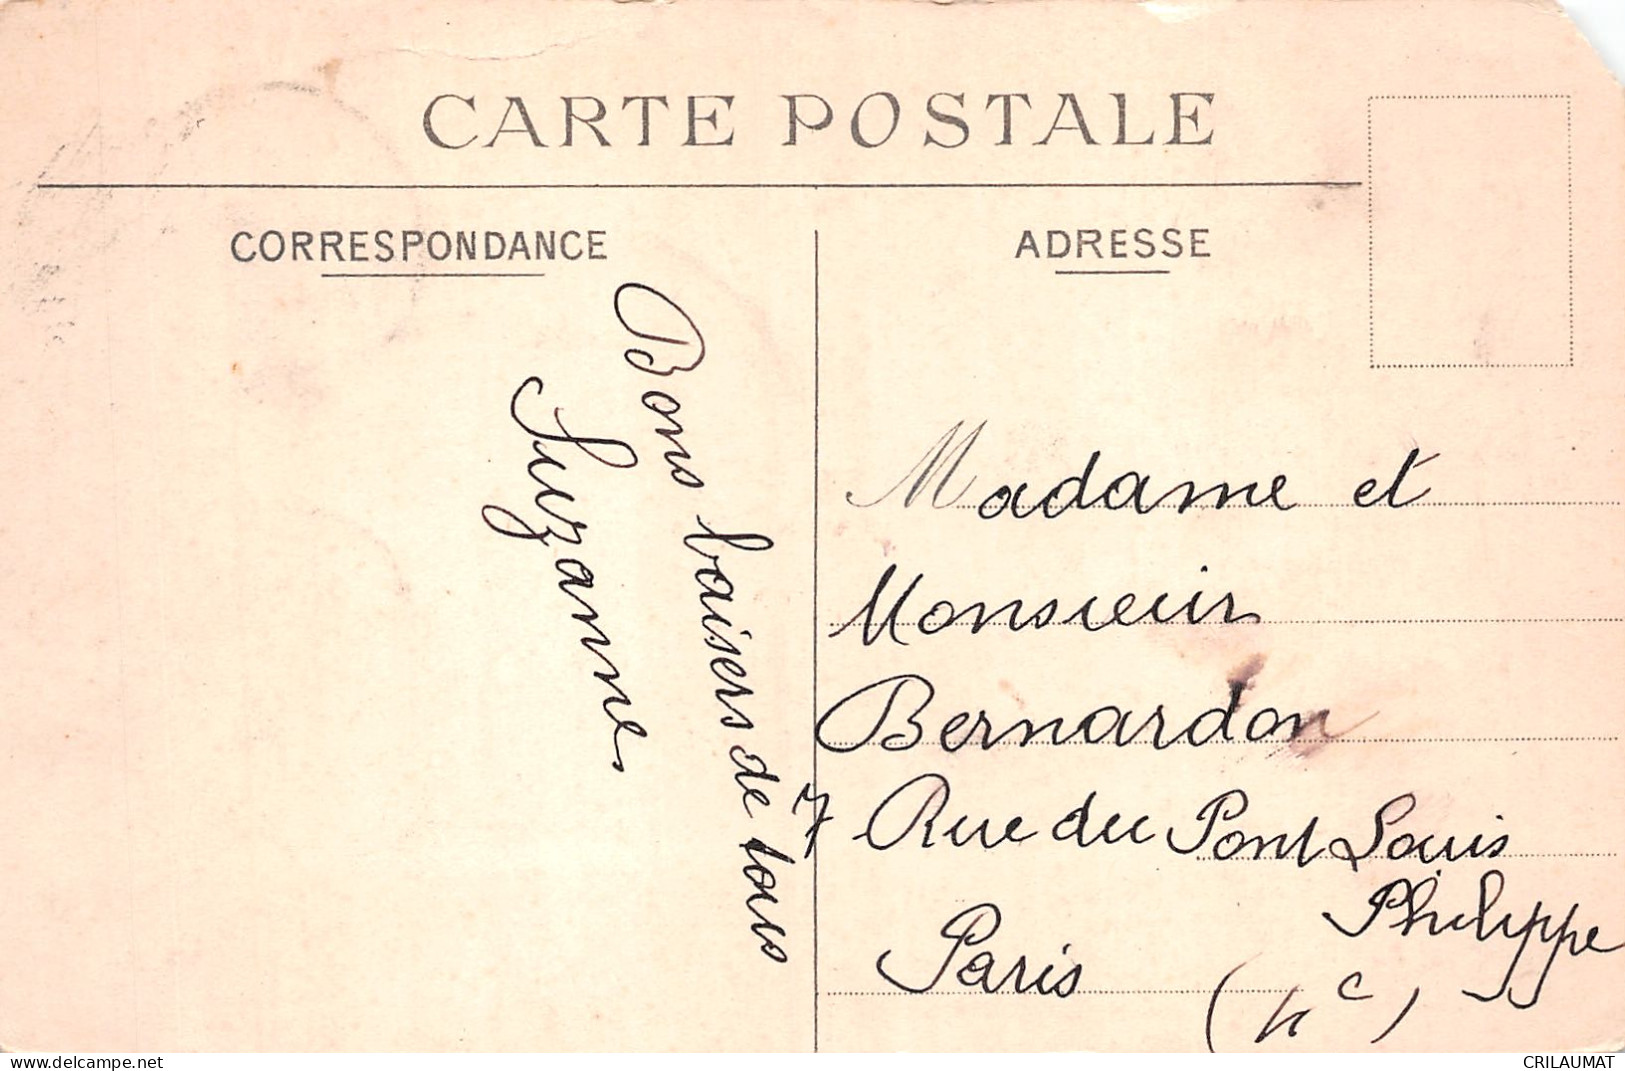 CARTE POSTALE
CORRESPONDANCE
ADRESSE
Bons baisers de tous
Suzanne
Madame et
Monsieur
Bernardon
7 Rue du Pont Louis
Philippe
Paris
(4c)
www.delcampe.net
CRILAUMAT